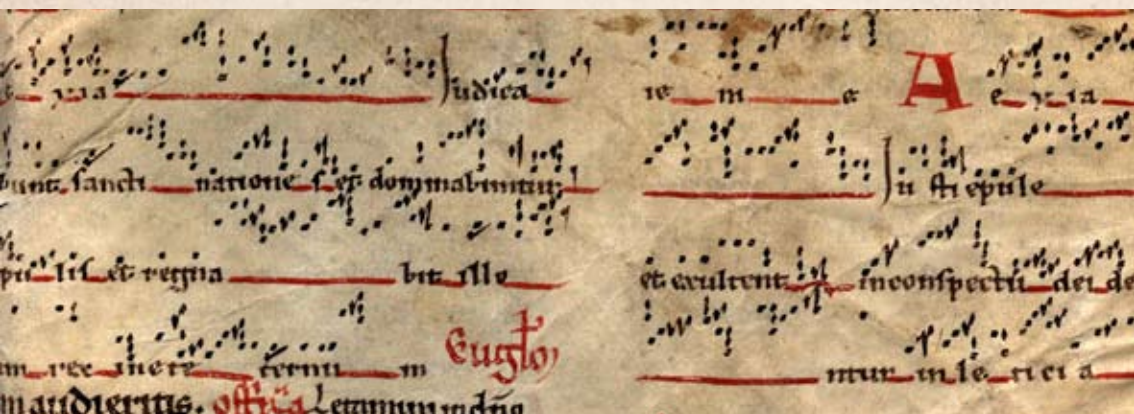 via Judica
bunt sancti natione s et dominabuntur
pulis et regna bit illo
m rex in ete ternu m
Eugło
m audieritis. offica Letamini in dño
ie m e
A e v ia
Justi epule
et exultent in conspectu dei de
ntur in le ticia